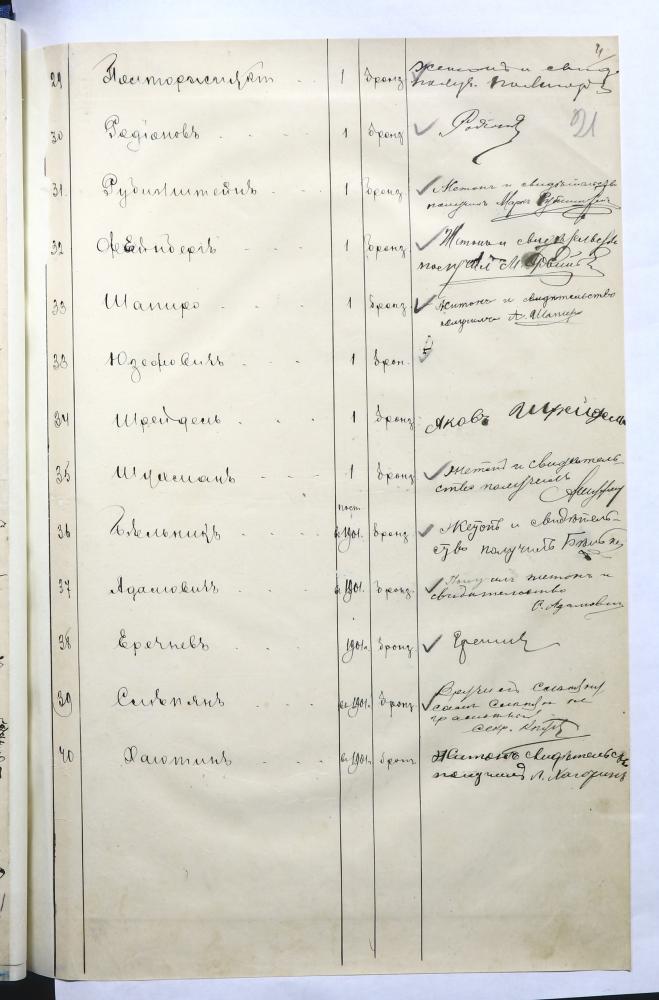 21
29 1 бронз. жетонъ и свид.
получ.
30 Радiоновъ 1 бронз.
31. Рубинштейнъ 1 бронз. Жетонъ и свидѣтельство
получилъ Маркъ Рубинштейнъ
32 1 бронз. Жетонъ и свидѣтельство
получилъ
33 Шапиро 1 бронз. Жетонъ и свидѣтельство
получилъ А. Шапиро
33 Юзефовичъ 1 брон.
34 Шрейдель 1 бронз. Яковъ Шрейдель
35 Шухманъ 1 бронз. жетонъ и свидѣтель-
ство получилъ
пост.
36 Бѣльникъ в 1901. бронз. Жетонъ и свидѣтель-
ство получилъ
37 Адамовичъ в 1901. бронз. Получилъ жетонъ и
свидѣтельство
С. Адамовичъ
38 1901. бронз.
39 Слѣпянъ в 1901. бронз. Вручилъ
самъ не
грамотный
секр.
40 Хаютинъ в 1901. бронз. Жетонъ свидѣтельство
получилъ Л. Хаютинъ